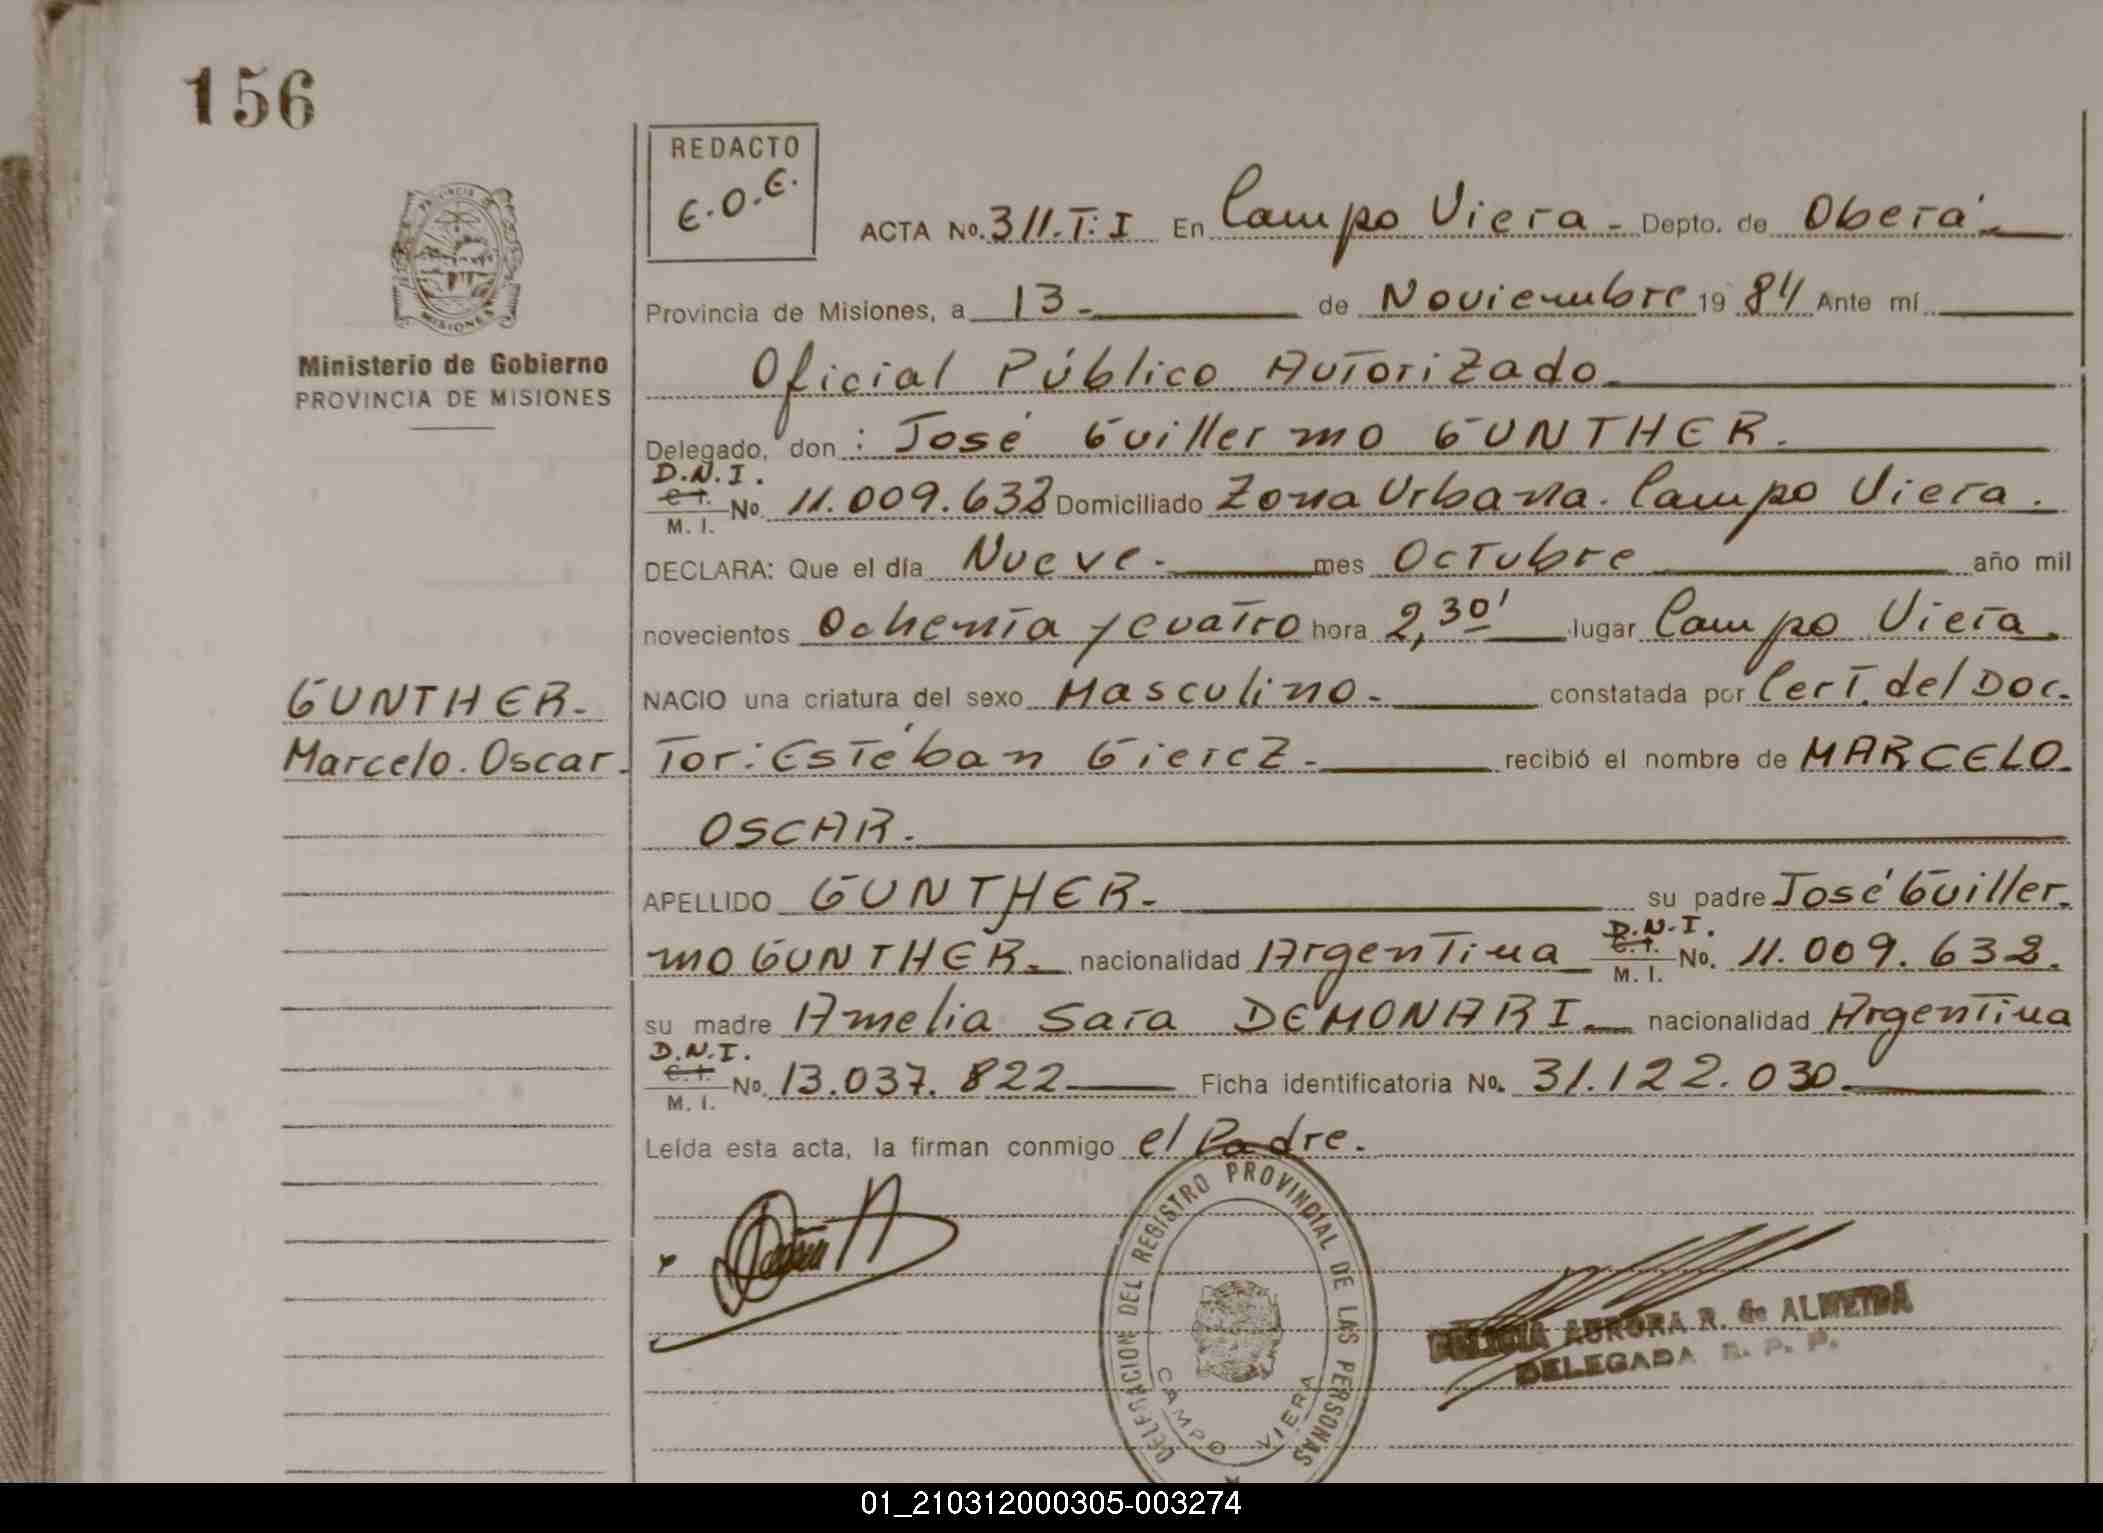 156
REDACTO
E.O.E.
ACTA No. 311.T:I En Campo Viera - Depto. de Oberá
PROVINCIA DE MISIONES
Provincia de Misiones, a 13 - de Noviembre 19 84 Ante mí
Ministerio de Gobierno
PROVINCIA DE MISIONES
Oficial Público Autorizado
Delegado, don : José Guillermo GUNTHER.
D.N.I.
C. I.
M. I. No. 11.009.638 Domiciliado Zona Urbana. Campo Viera.
DECLARA: Que el día Nueve - mes Octubre año mil
novecientos Ochenta y cuatro hora 2,30' lugar Campo Viera.
GUNTHER.
Marcelo. Oscar.
NACIO una criatura del sexo Masculino. - constatada por Cert. del Doc.
Tor: Estéban Gierez - recibió el nombre de MARCELO
OSCAR.
APELLIDO GUNTHER. su padre José Guiller.
mo GUNTHER. nacionalidad Argentina D.N.I. C. I. M. I. No. 11.009.638.
su madre Amelia Sara DEMONARI. nacionalidad Argentina
D.N.I.
C. I.
M. I. No. 13.037.822 Ficha identificatoria No. 31.122.030.
Leída esta acta, la firman conmigo el Padre.
DELEGACION DEL REGISTRO PROVINCIAL DE LAS PERSONAS
CAMPO VIERA
FELICIA AURORA R. de ALMEIDA
DELEGADA R. P. P.
01_210312000305-003274